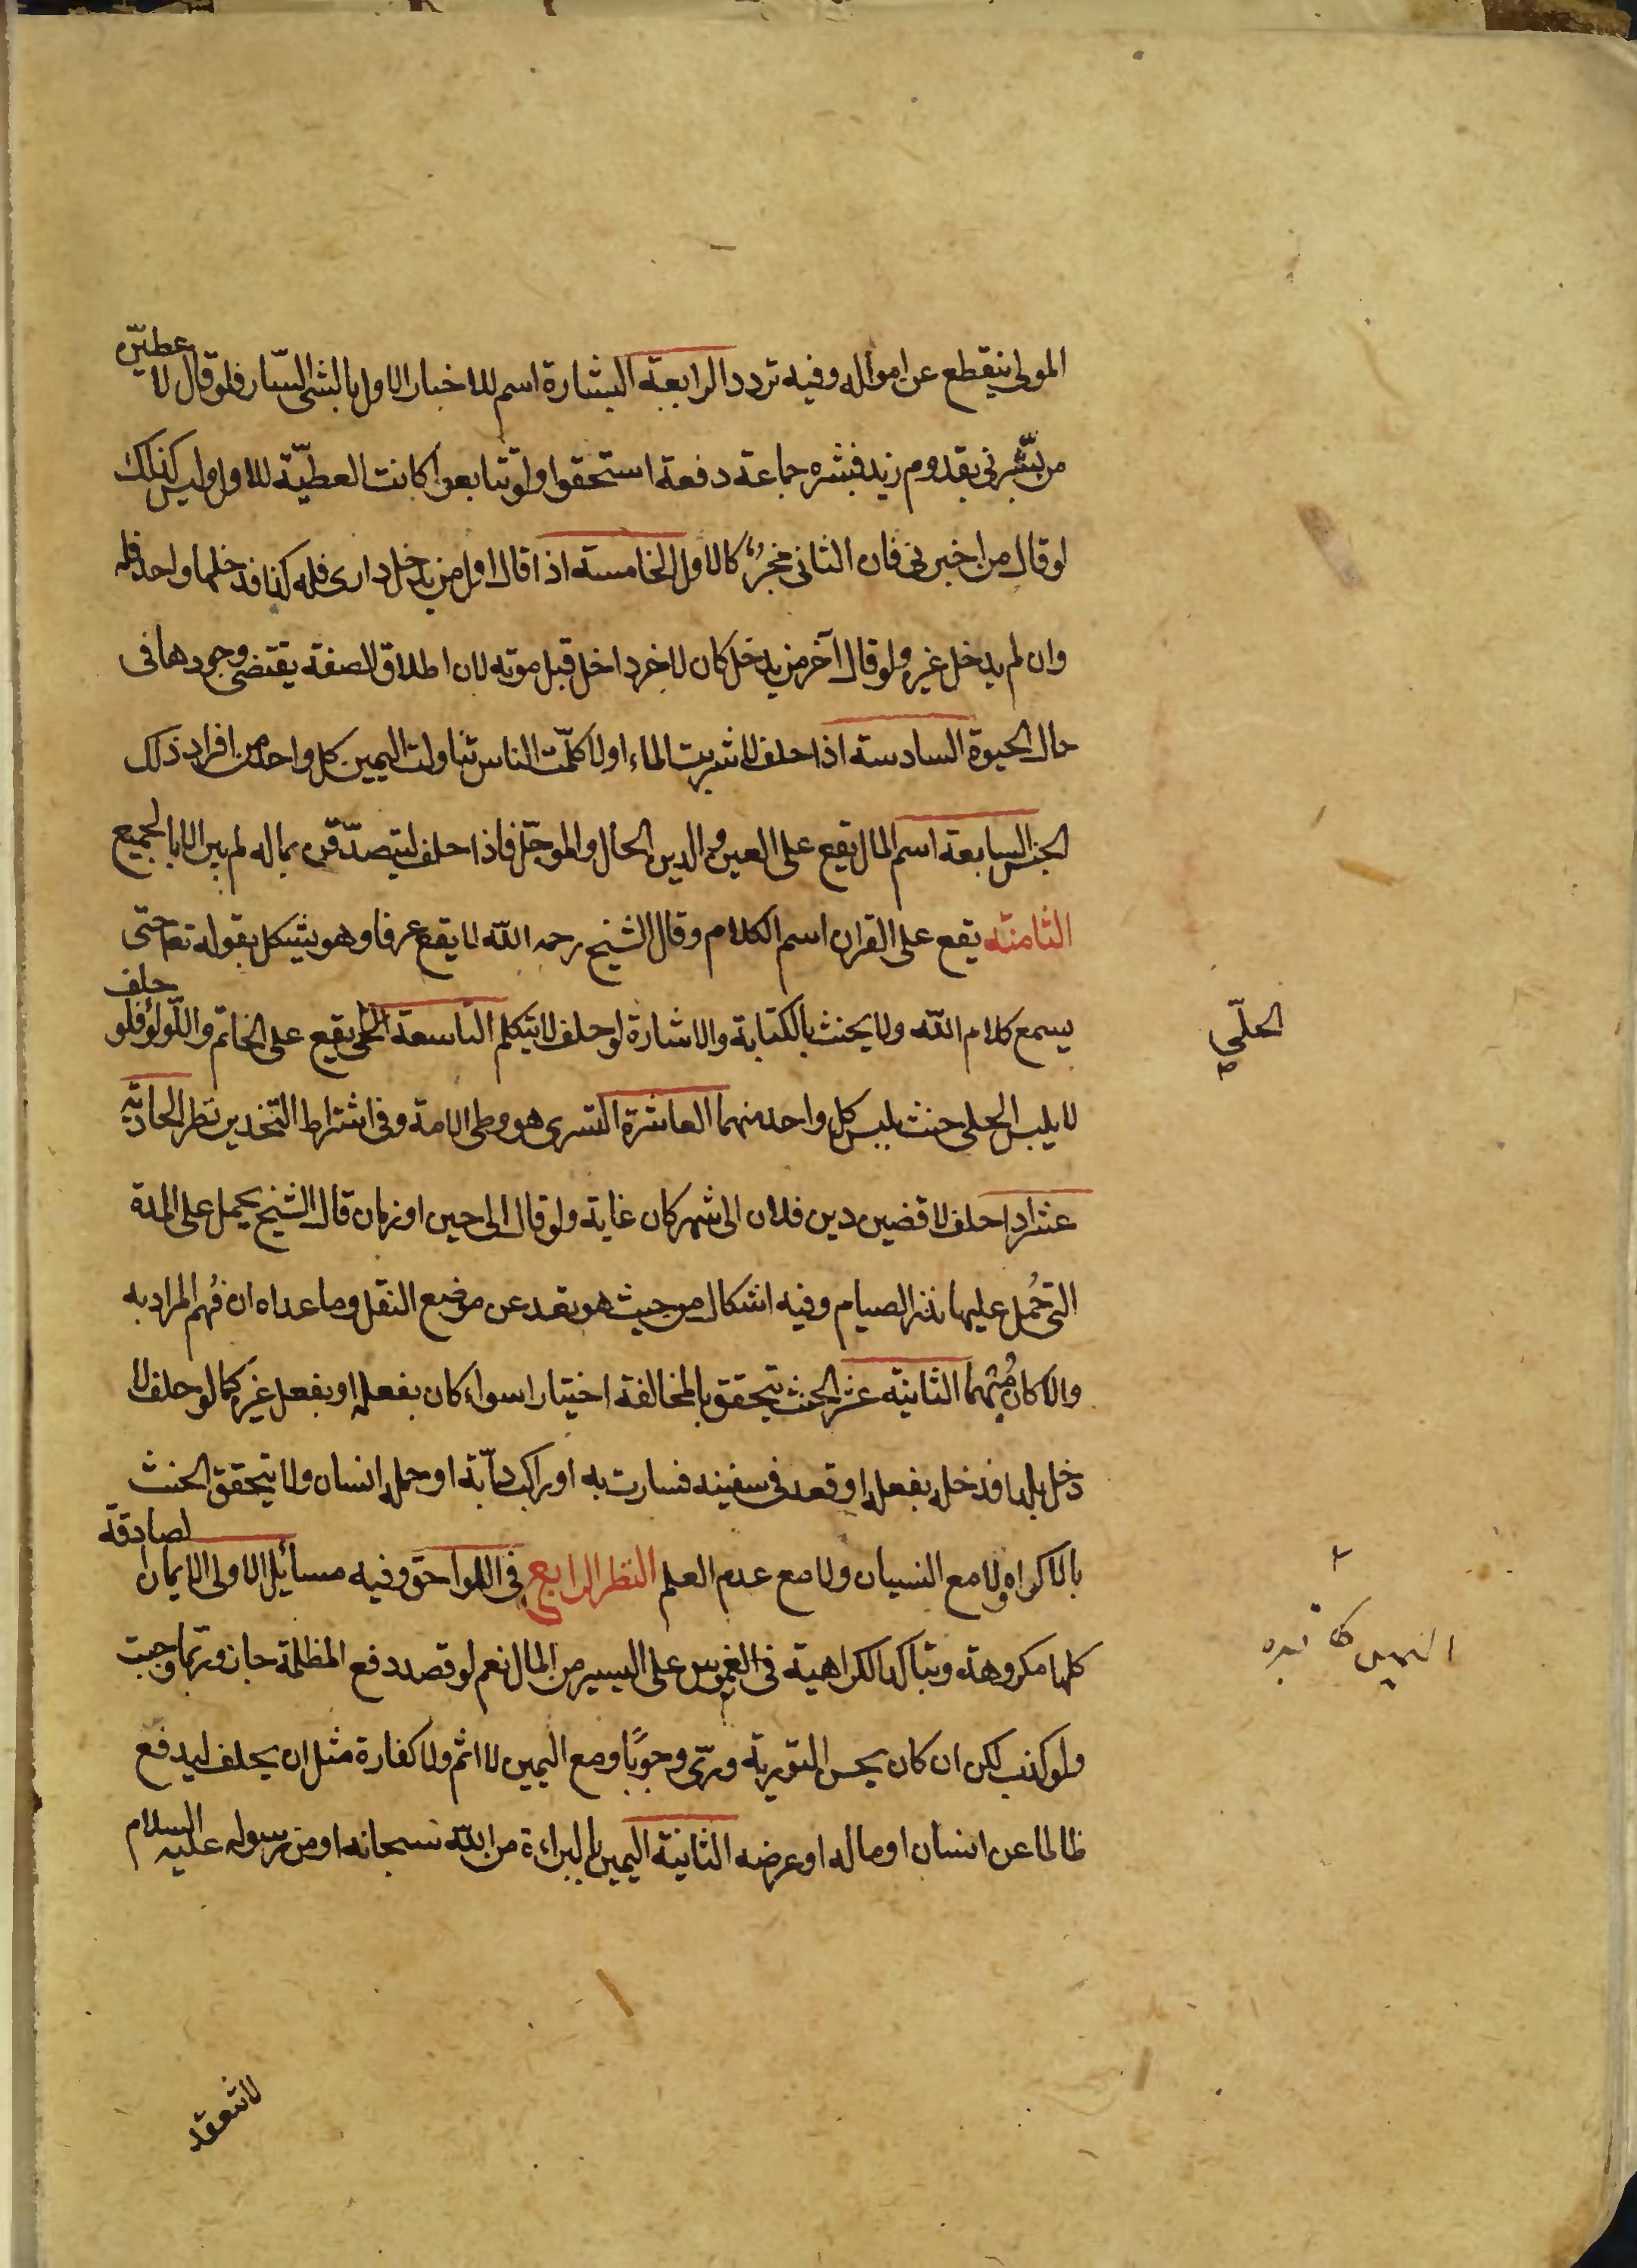 المولى ينقطع عن امواله وفيه تردد الرابعة البشارة اسم للاخبار الاول بالشئ السّار فلو قال لا عطيّن
من بشّرني بقدوم زيد فبشره جماعة دفعة استحقوا ولو تتابعوا كانت العطيّة للاول وليس كذلك
لو قال من اخبرني فان الثاني مخبرٌ كالاول الخامسة اذا قال اول من يدخل داري فله كذا فدخلها واحد فله
وان لم يدخل غيره ولو قال آخر من يدخل كان لاخر داخل قبل موته لان اطلاق الصفة يقتضي وجودها في
حال الحيوة السادسة اذا حلف لا شربت الماء او لا كلّمت الناس تناولت اليمين كل واحد من افراد ذلك
الجنس السابعة اسم المال يقع على العين والدين الحال والموجّل فاذا حلف ليتصدّقن بماله لم يبر الا بالجميع
الثامنة يقع على القران اسم الكلام وقال الشيخ رحمه الله لا يقع عرفا وهو يشكل بقوله تعا حتى
يسمع كلام الله ولا يحنث بالكتابة والاشارة لو حلف لا يتكلم التاسعة الحلى يقع على الخاتم واللّولؤ فلو حلف
الحلّي
لا يلبس الحلى حنث بلبس كل واحد منهما العاشرة التسرى هو وطى الامة وفي اشتراط التخدير نظر الحادية
عشر اذا حلف لاقضين دين فلان الى شهر كان غاية ولو قال الى حين او زمان قال الشيخ يحمل على المدة
التي حُمل عليها نذر الصيام وفيه اشكال من حيث هو تعد عن موضع النقل وما عداه ان فُهم المراد به
والا كان مُبهما الثانية عشر الحنث يتحقق بالمخالفة اختيارا سواء كان بفعله او بفعل غيره كما لو حلف لا
دخل بلدا فدخله بفعله او قعد في سفينه فسارت به او راكب دآبة او حمله انسان ولا يتحقق الحنث
بالاكراه ولا مع النسيان ولا مع عدم العلم النظر الرابع في اللواحق وفيه مسائل الاولى الايمان الصادقة
كلها مكروهة ويتاكد الكراهية في الغموس على اليسير من المال نعم لو قصد دفع المظلمة جاز وربّما وجبت
ولو كذب لكن ان كان يحسن التورية ورّى وجوبًا ومع اليمين لا اثم ولا كفارة مثل ان يحلف ليدفع
ظالما عن انسان او ماله او عرضه الثانية اليمين بالبراءة من الله سبحانه او من رسوله عليه السلام
لا تنعقد